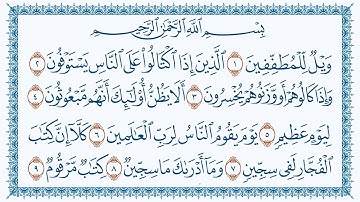 بِسْمِ اللَّهِ الرَّحْمَٰنِ الرَّحِيمِ
وَيْلٌ لِّلْمُطَفِّفِينَ ١ الَّذِينَ إِذَا اكْتَالُوا عَلَى النَّاسِ يَسْتَوْفُونَ ٢
وَإِذَا كَالُوهُمْ أَو وَّزَنُوهُمْ يُخْسِرُونَ ٣ أَلَا يَظُنُّ أُولَٰئِكَ أَنَّهُم مَّبْعُوثُونَ ٤
لِيَوْمٍ عَظِيمٍ ٥ يَوْمَ يَقُومُ النَّاسُ لِرَبِّ الْعَالَمِينَ ٦ كَلَّا إِنَّ كِتَٰبَ
الْفُجَّارِ لَفِي سِجِّينٍ ٧ وَمَا أَدْرَىٰكَ مَا سِجِّينٌ ٨ كِتَٰبٌ مَّرْقُومٌ ٩